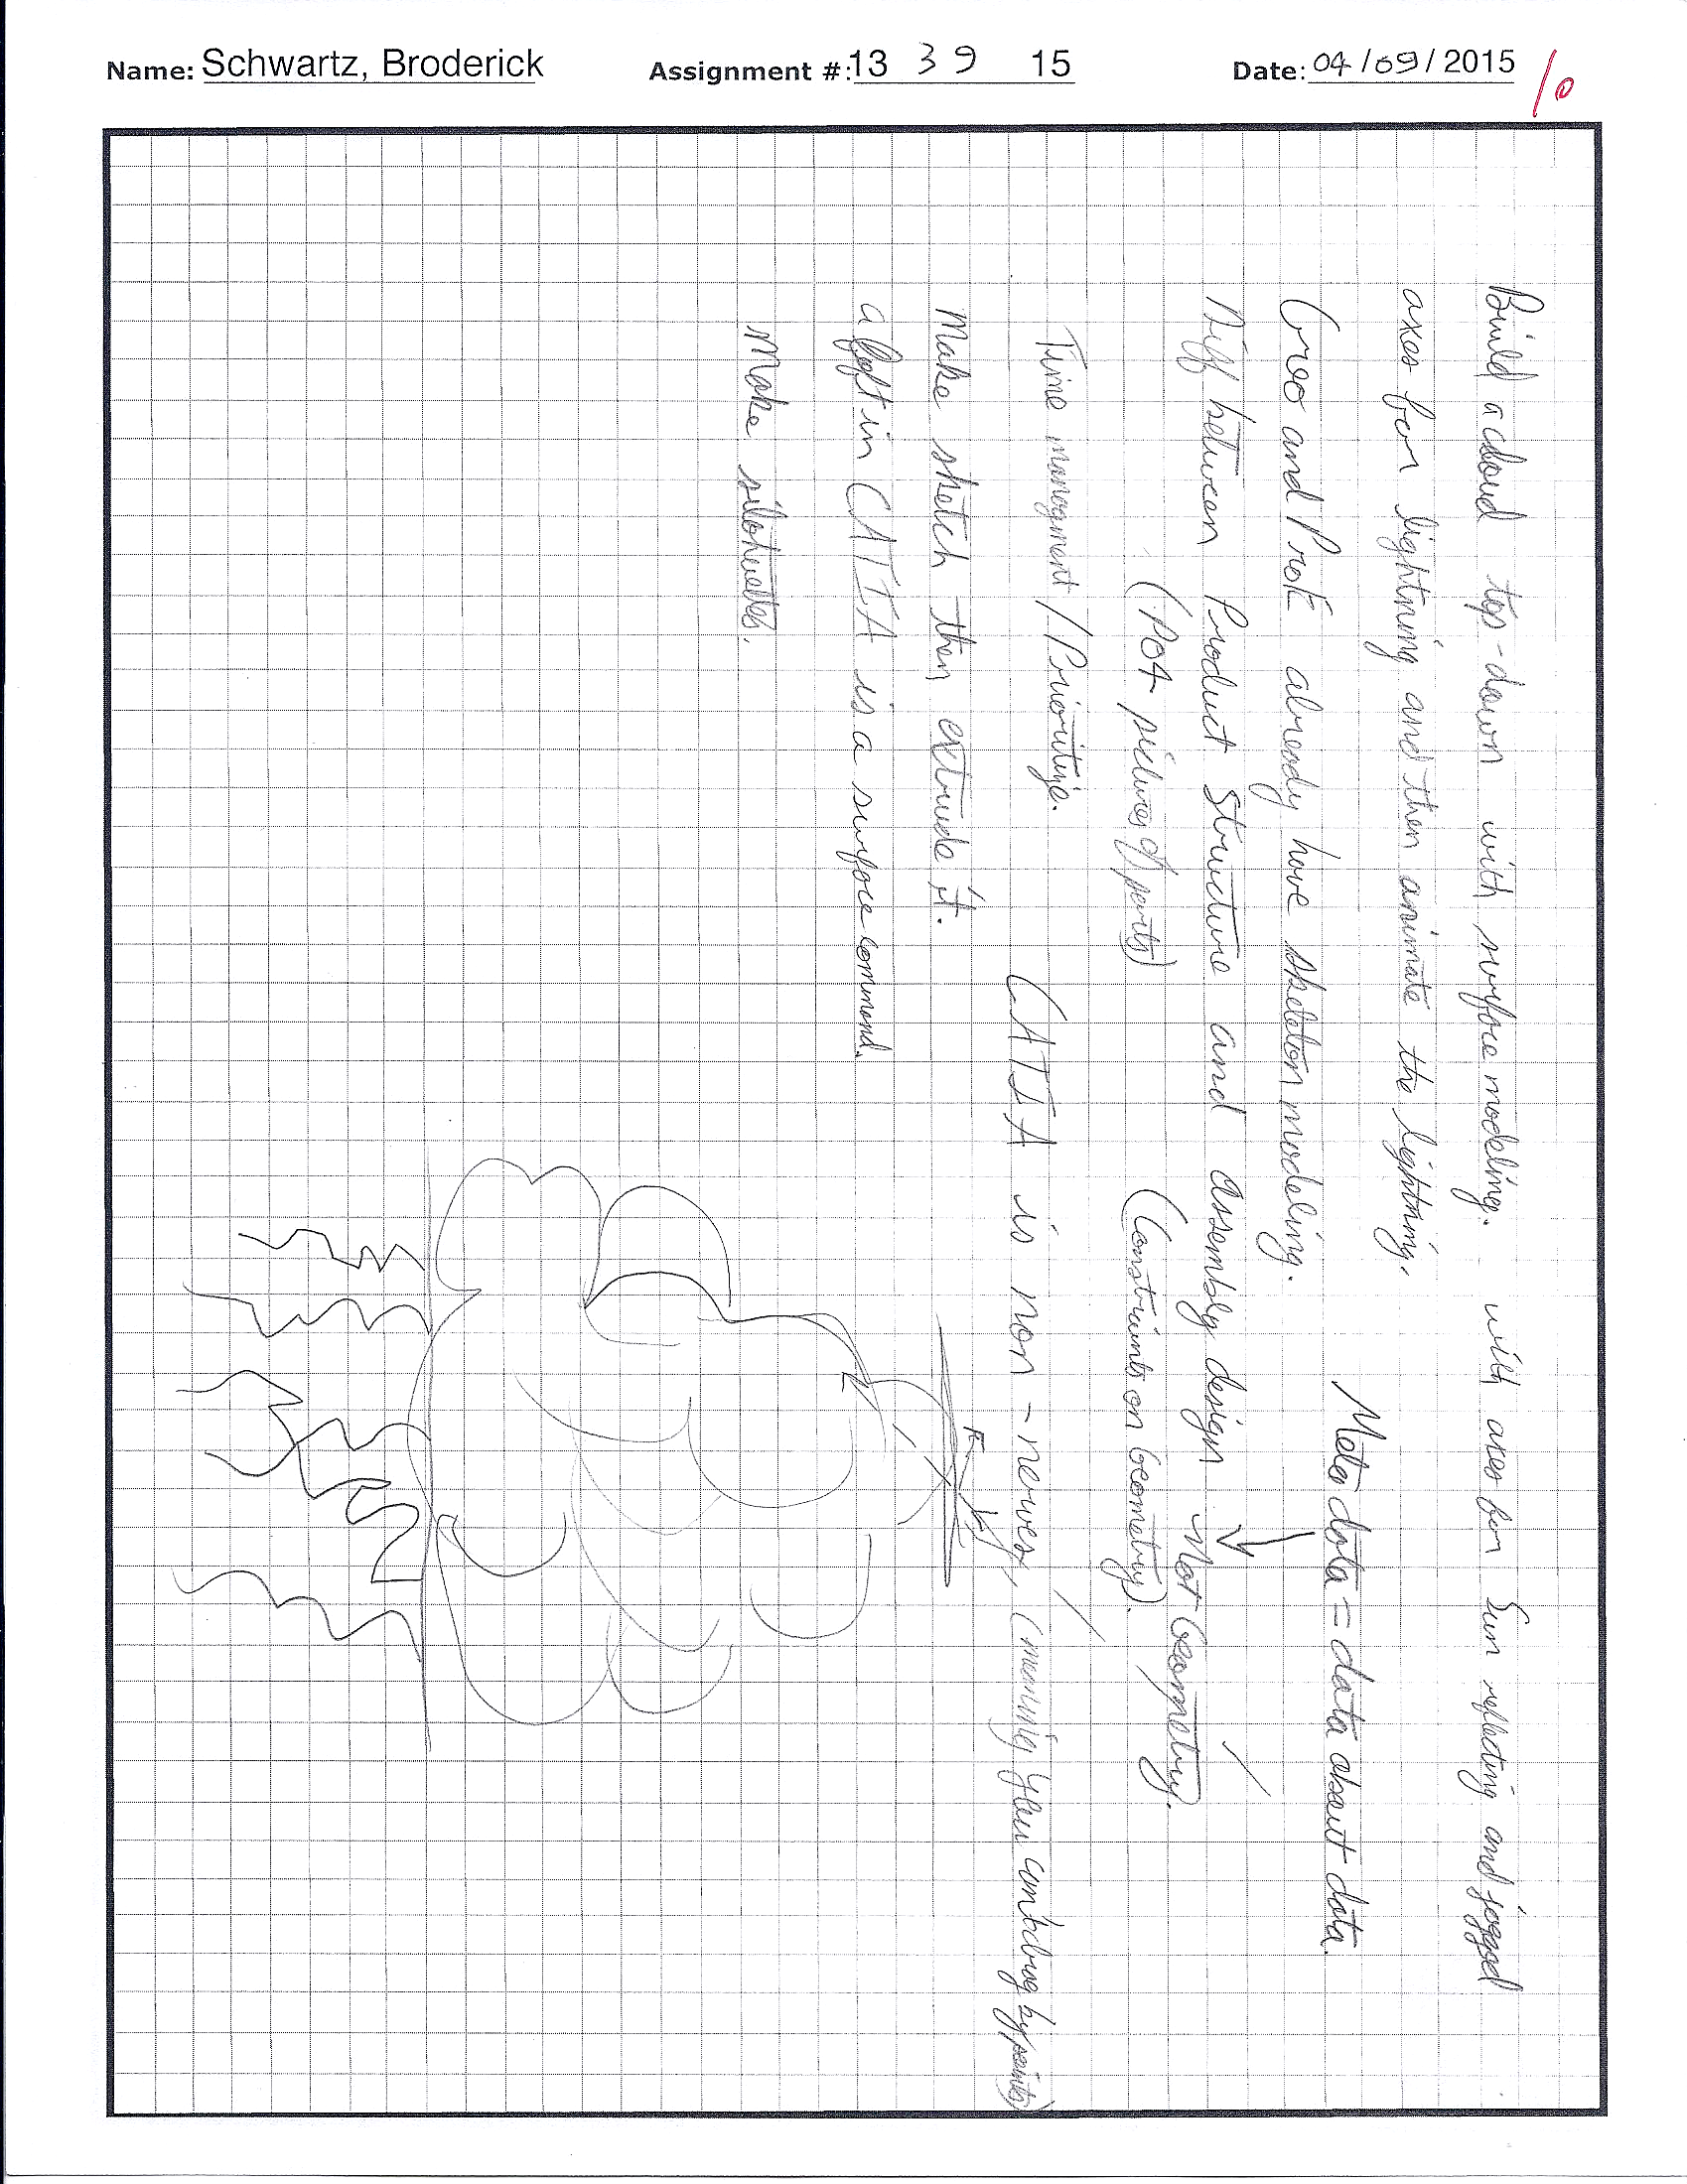 Name: Schwartz, Broderick Assignment #: 13 39 15 Date: 04/09/2015
10
Build a cloud top-down with surface modeling. with axes for Sun reflecting and jagged
axes for lightning and then animate the lightning.
Creo and ProE already have skeleton modeling.
Meta data = data about data.
Diff between Product Structure and assembly design
Not Geometry.
(Pot pictures of parts)
(Constraints on Geometry).
Time managment / Prioritize.
CATIA is non - nerves, (mening you can't drag by points)
Make sketch then extrude it.
a loft in CATIA is a surface command.
Make silohuettes.